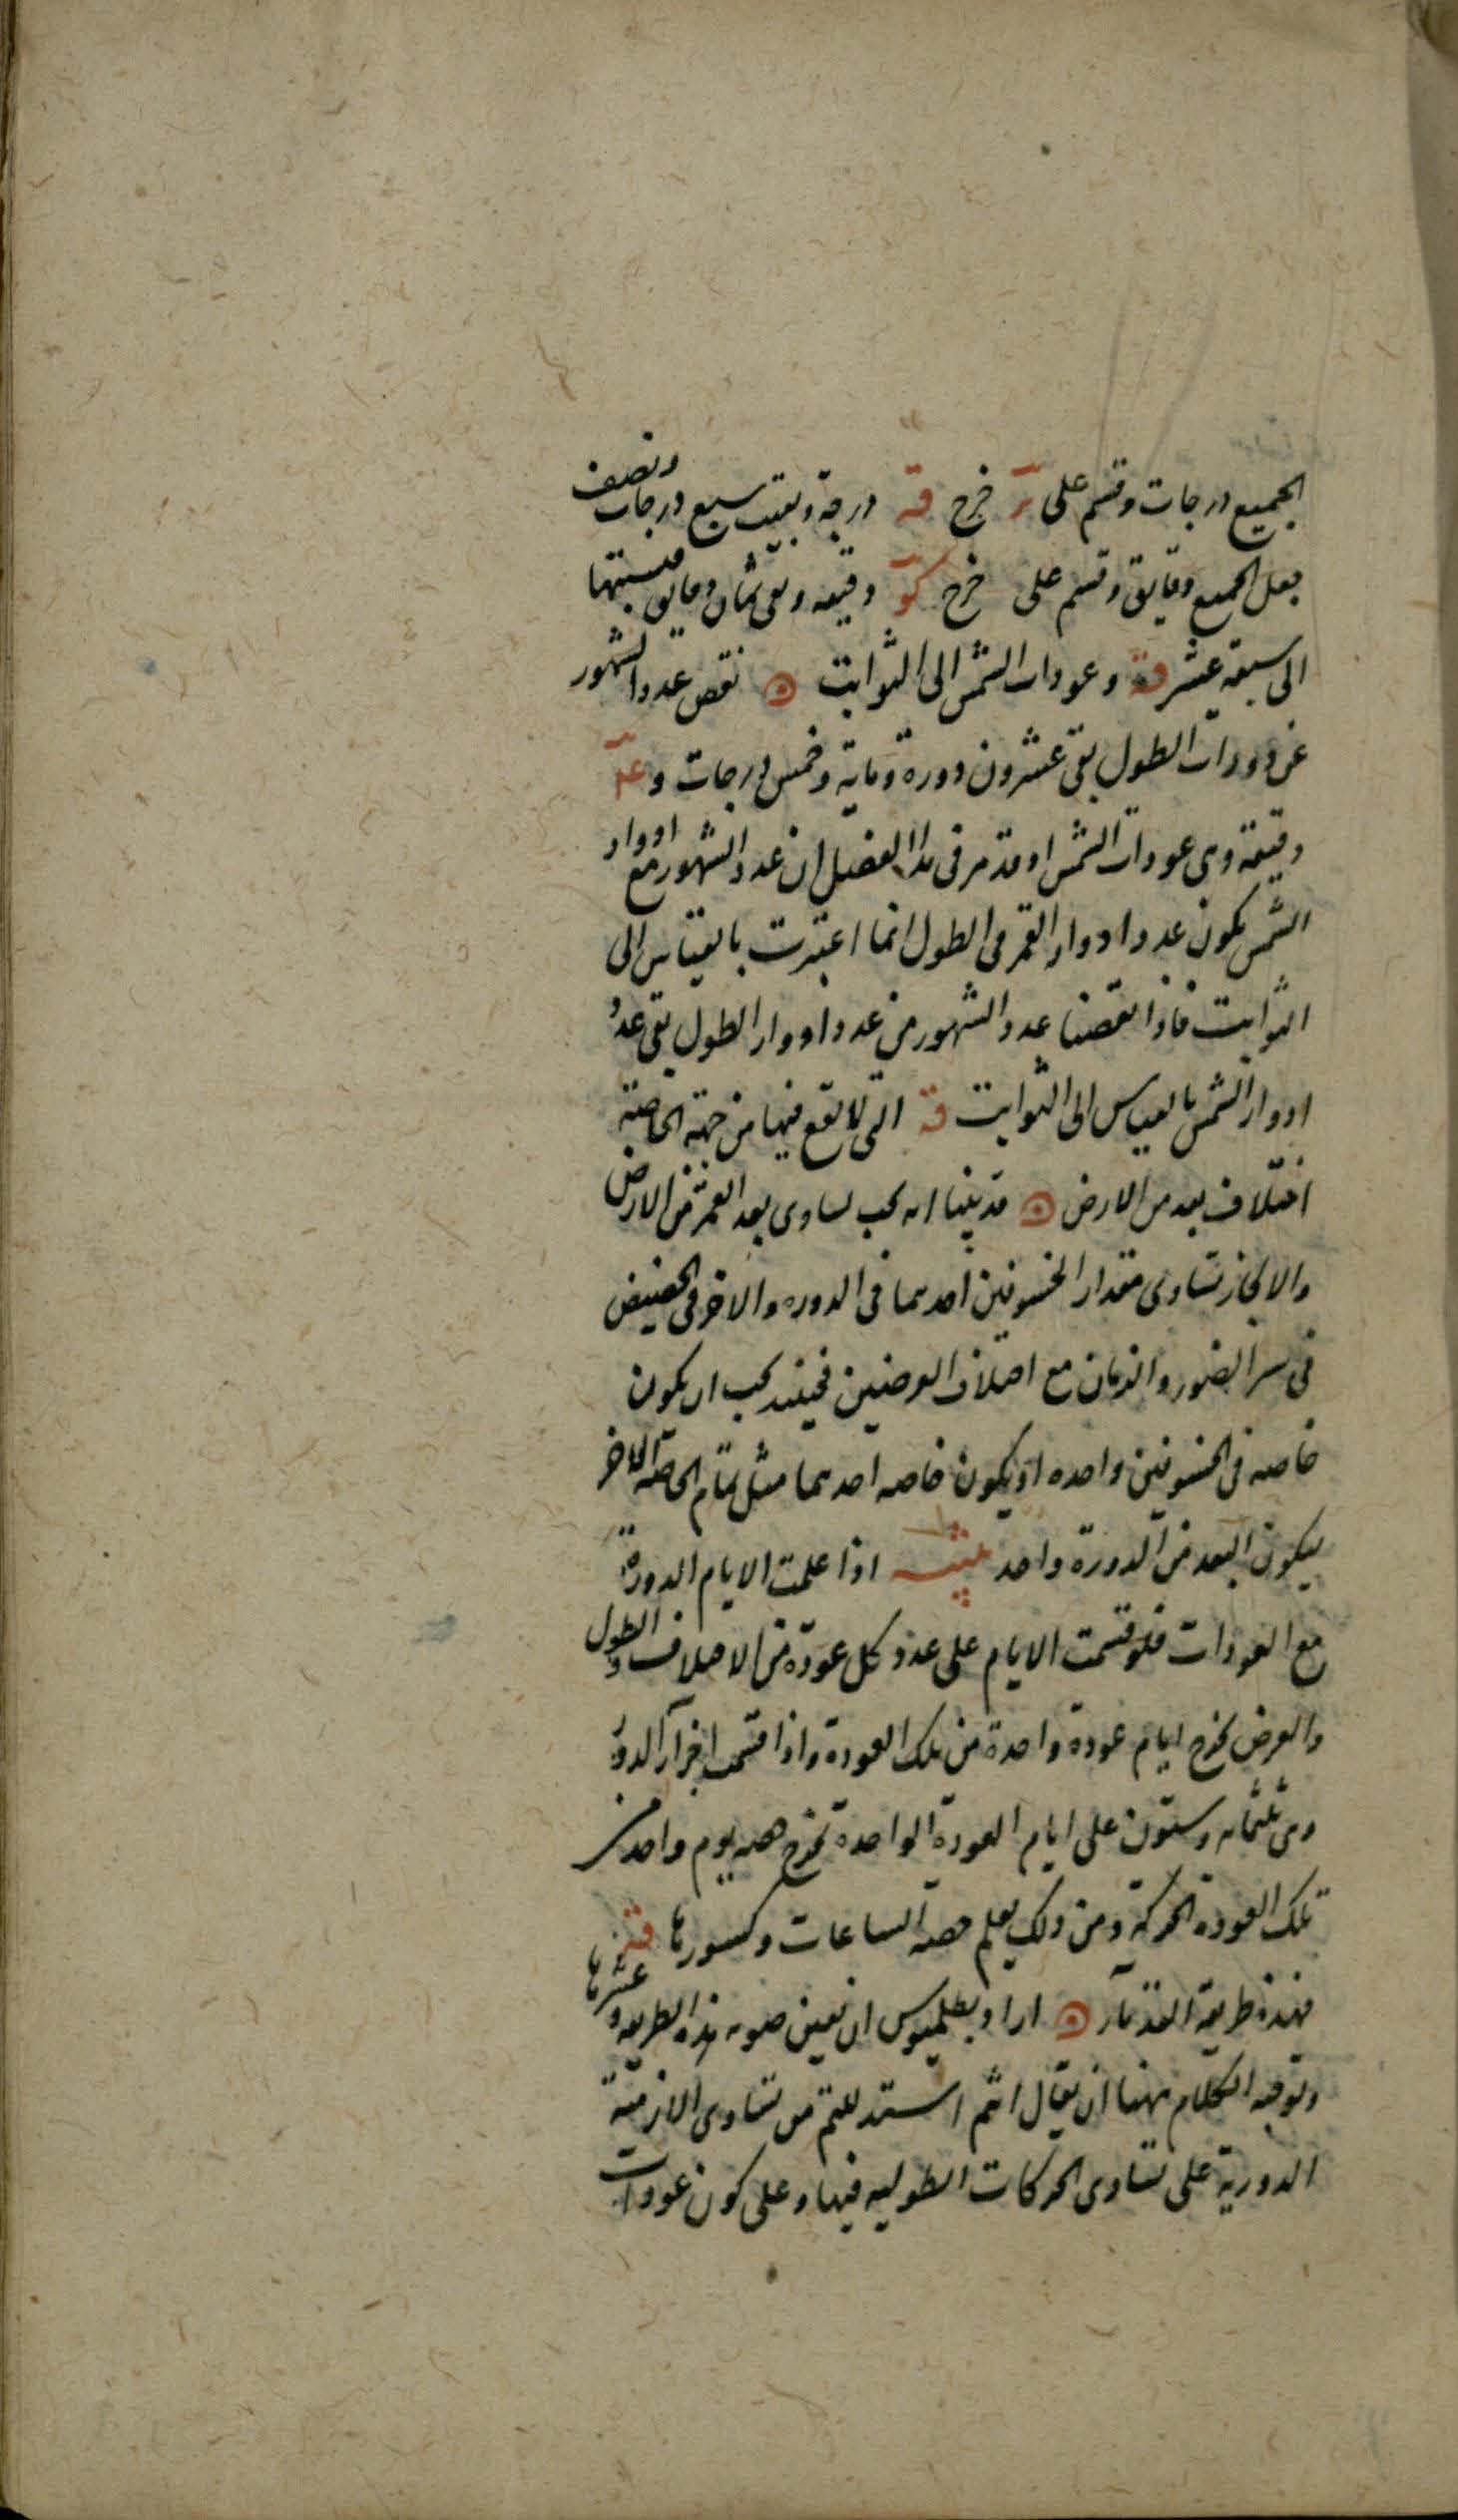 الجميع درجات وقسم على خرج قه درجة وبقيت سبع درجات ونصف
جعل الجميع دقايق وقسم على خرج كو دقيقه وبقى ثمان دقايق فنسبتها
الى سبعة عشر قه وعودات الشمس الى الثوابت نقص عدد الشهور
عن دورات الطول بقى عشرون دورة ومايه وخمس درجات و
دقيقة وهى عودات الشمس اد قد مر فى هذا الفصل ان عدد الشهور مع ادوار
الشمس يكون عدد ادوار القمر فى الطول انما اعتبرت بالقياس الى
الثوابت فاذا نقصنا عدد الشهور من عدد ادوار الطول بقى عدد
ادوار الشمس بالقياس الى الثوابت قه التى لا تقع فيها من جهة الخاصة
اختلاف بعد من الارض قد بينا انه يجب تساوى بعد القمر من الارض
والا لجاز تساوى مقدار الخسوفين احدهما فى الدوره والاخر فى الحضيض
فى الضوء والزمان مع اختلاف العرضين فحينئذ يجب ان يكون
خاصه فى الخسوفين واحده او يكون خاصه احدهما مثل تمام الخاصه الاخر
ليكون البعد من الدورة واحد اذا علمت الايام الدورة
مع العودات فلو قسمت الايام على عدد كل عودة من الاختلاف والطول
والعرض يخرج ايام عودة واحدة من تلك العودة واذا قسمت اجزآ الدور
وهى ثلثمائه وستون على ايام العودة الواحدة يخرج حصه يوم واحد من
تلك العودة الحركة ومن ذلك يعلم حصه الساعات وكسورها قه
فهذه طريقة القدمآ اراد بطلميوس ان يعين صوبه هذه الطريقه وعشرها
وتوجيه الكلام ههنا ان يقال انكم استدللتم من تساوى الازمنة
الدورية على تساوى الحركات الطوليه فيها وعلى كون عودات